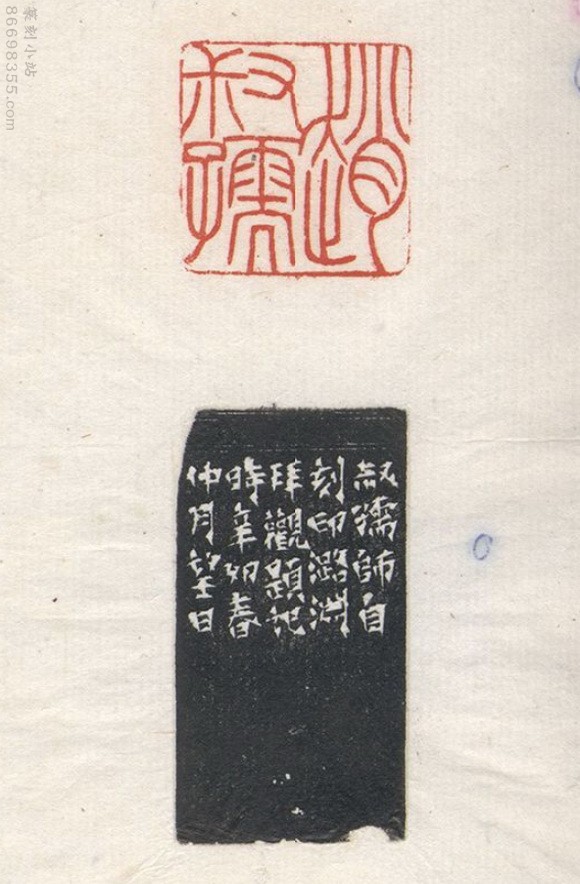 趙
叔孺
叔孺師自
刻印潞淵
拜觀題記
時辛卯春
仲月望日
篆刻小站
86698355.com